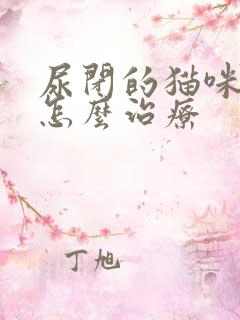 尿閉的猫咪
怎麽治療
丁旭